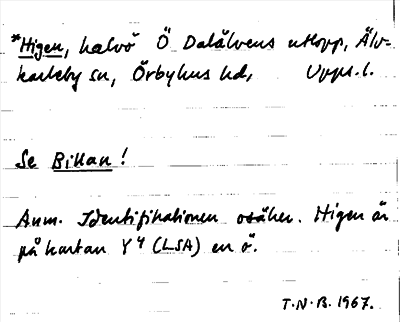 *Higen, halvö Ö Dalälvens utlopp, Älv-
karleby sn, Örbyhus hd, Upps. l.
Se Billan!
Anm. Identifikationen osäker. Higen är
på kartan Y4 (LSA) en ö.
T.N.B. 1967.